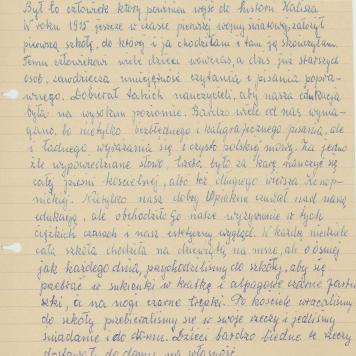 Był to człowiek, który powinien wejść do historii Kalisza
W roku 1915 jeszcze w czasie pierwszej wojny światowej, założył
pierwszą szkołę, do której i ja chodziłam i tam ją skończyłam.
Temu człowiekowi wiele dzieci wówczas, a dziś już starszych
osób, zawdzięcza umiejętność czytania i pisania popra-
wnego. Dobierał takich nauczycieli, aby nasza edukacja
była na wysokim poziomie. Bardzo wiele od nas wyma-
gano, bo nie tylko bezbłędnego i kaligraficznego pisania, ale
i ładnego wyrażania się czysto polską mową. Za jedno
źle wypowiedziane słowo, było za karę nauczyć się
całej pieśni kościelnej, albo też długiego wiersza Konop-
nickiej. Nie tylko nasz dobry Opiekun czuwał nad naszą
edukacją, ale obchodziło go nasze wyżywienie w tych
ciężkich czasach i nasz estetyczny wygląd. W każdą niedzielę
cała szkoła chodziła na dziewiątą na mszę, ale o ósmej
jak każdego dnia, przychodziliśmy do szkoły, aby się
przebrać w sukienki w kratkę i alpagowe czarne fartu-
szki, a na nogi czarne trepki. Po kościele wracaliśmy
do szkoły przebieraliśmy się w swoje rzeczy i jedliśmy
śniadanie i do domu. Dzieci bardzo biedne te rzeczy
dostawały do domu na własność